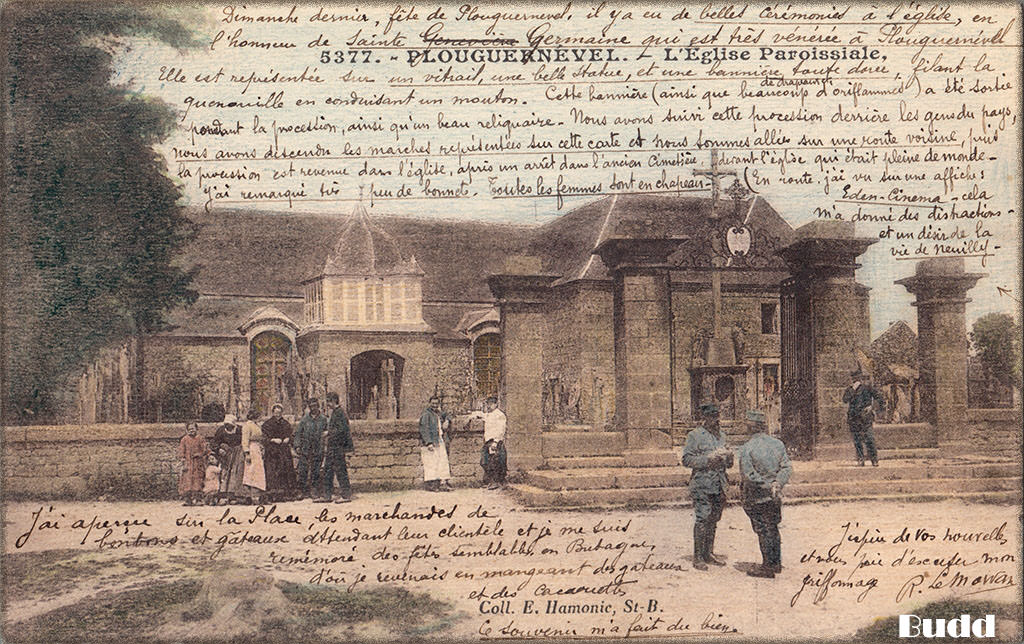 Dimanche dernier, fête de Plouguernével, il y a eu de belles cérémonies à l'église, en
l'honneur de Sainte Geneviève Germaine qui est très vénérée à Plouguernével
5377. - PLOUGUERNÉVEL. - L'Eglise Paroissiale,
Elle est représentée sur un vitrail, une belle statue, et une bannière toute dorée, filant la
quenouille en conduisant un mouton. Cette bannière (ainsi que beaucoup d'oriflammes) a été sortie
de drapeaux
pendant la procession, ainsi qu'un beau reliquaire. Nous avons suivi cette procession derrière les gens du pays,
nous avons descendu les marches représentées sur cette carte et nous sommes allés sur une route voisine, puis
la procession est revenue dans l'église, après un arrêt dans l'ancien Cimetière, devant l'église qui était pleine de monde -
J'ai remarqué très peu de bonnets. Toutes les femmes sont en chapeau - (En route, j'ai vu sur une affiche :
Eden-Cinema - cela
m'a donné des distractions -
et un désir de la
vie de Neuilly -
J'ai aperçu sur la Place, les marchandes de
bonbons et gâteaux attendant leur clientèle et je me suis
remémoré des fêtes semblables, en Bretagne,
d'où je revenais en mangeant des gâteaux
et des cacahuètes
Ce souvenir m'a fait du bien.
J'espère de vos nouvelles
et vous prie d'excuser mon
griffonnage
R. Le Morvan
Coll. E. Hamonic, St-B.
Budd